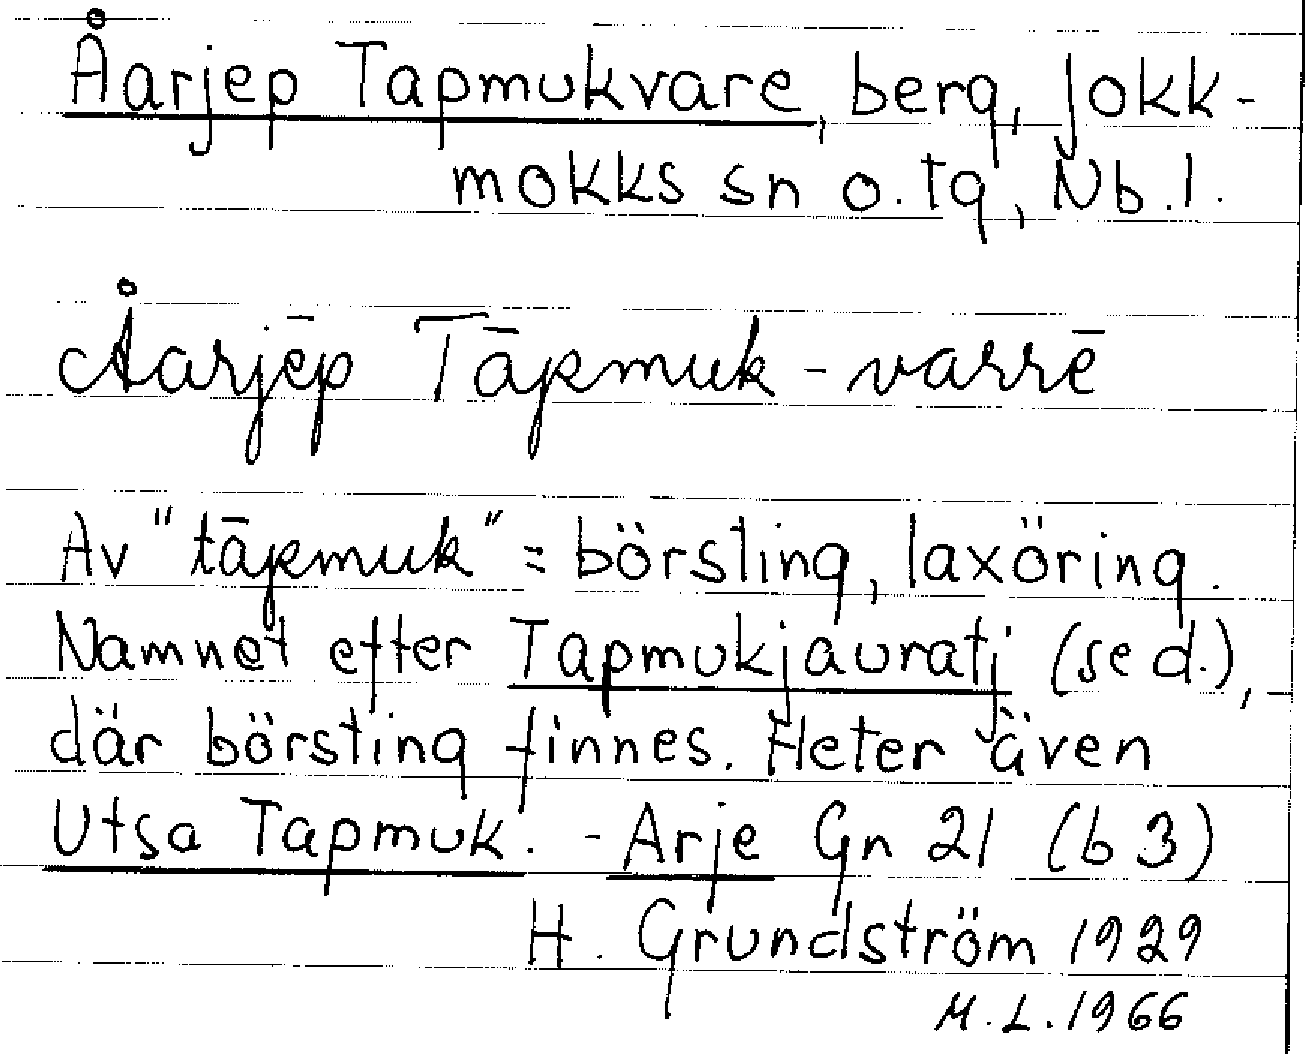 Åarjep Tapmukvare, berg, Jokk-
mokks sn o. tg, Nb. l.
Åarjēp Tāpmuk-varrē
Av "tāpmuk" = börsting, laxöring.
Namnet efter Tapmukjauratj (se d.),
där börsting finnes. Heter även
Utsa Tapmuk. - Arje Gn 21 (b 3)
H. Grundström 1929
M.L. 1966